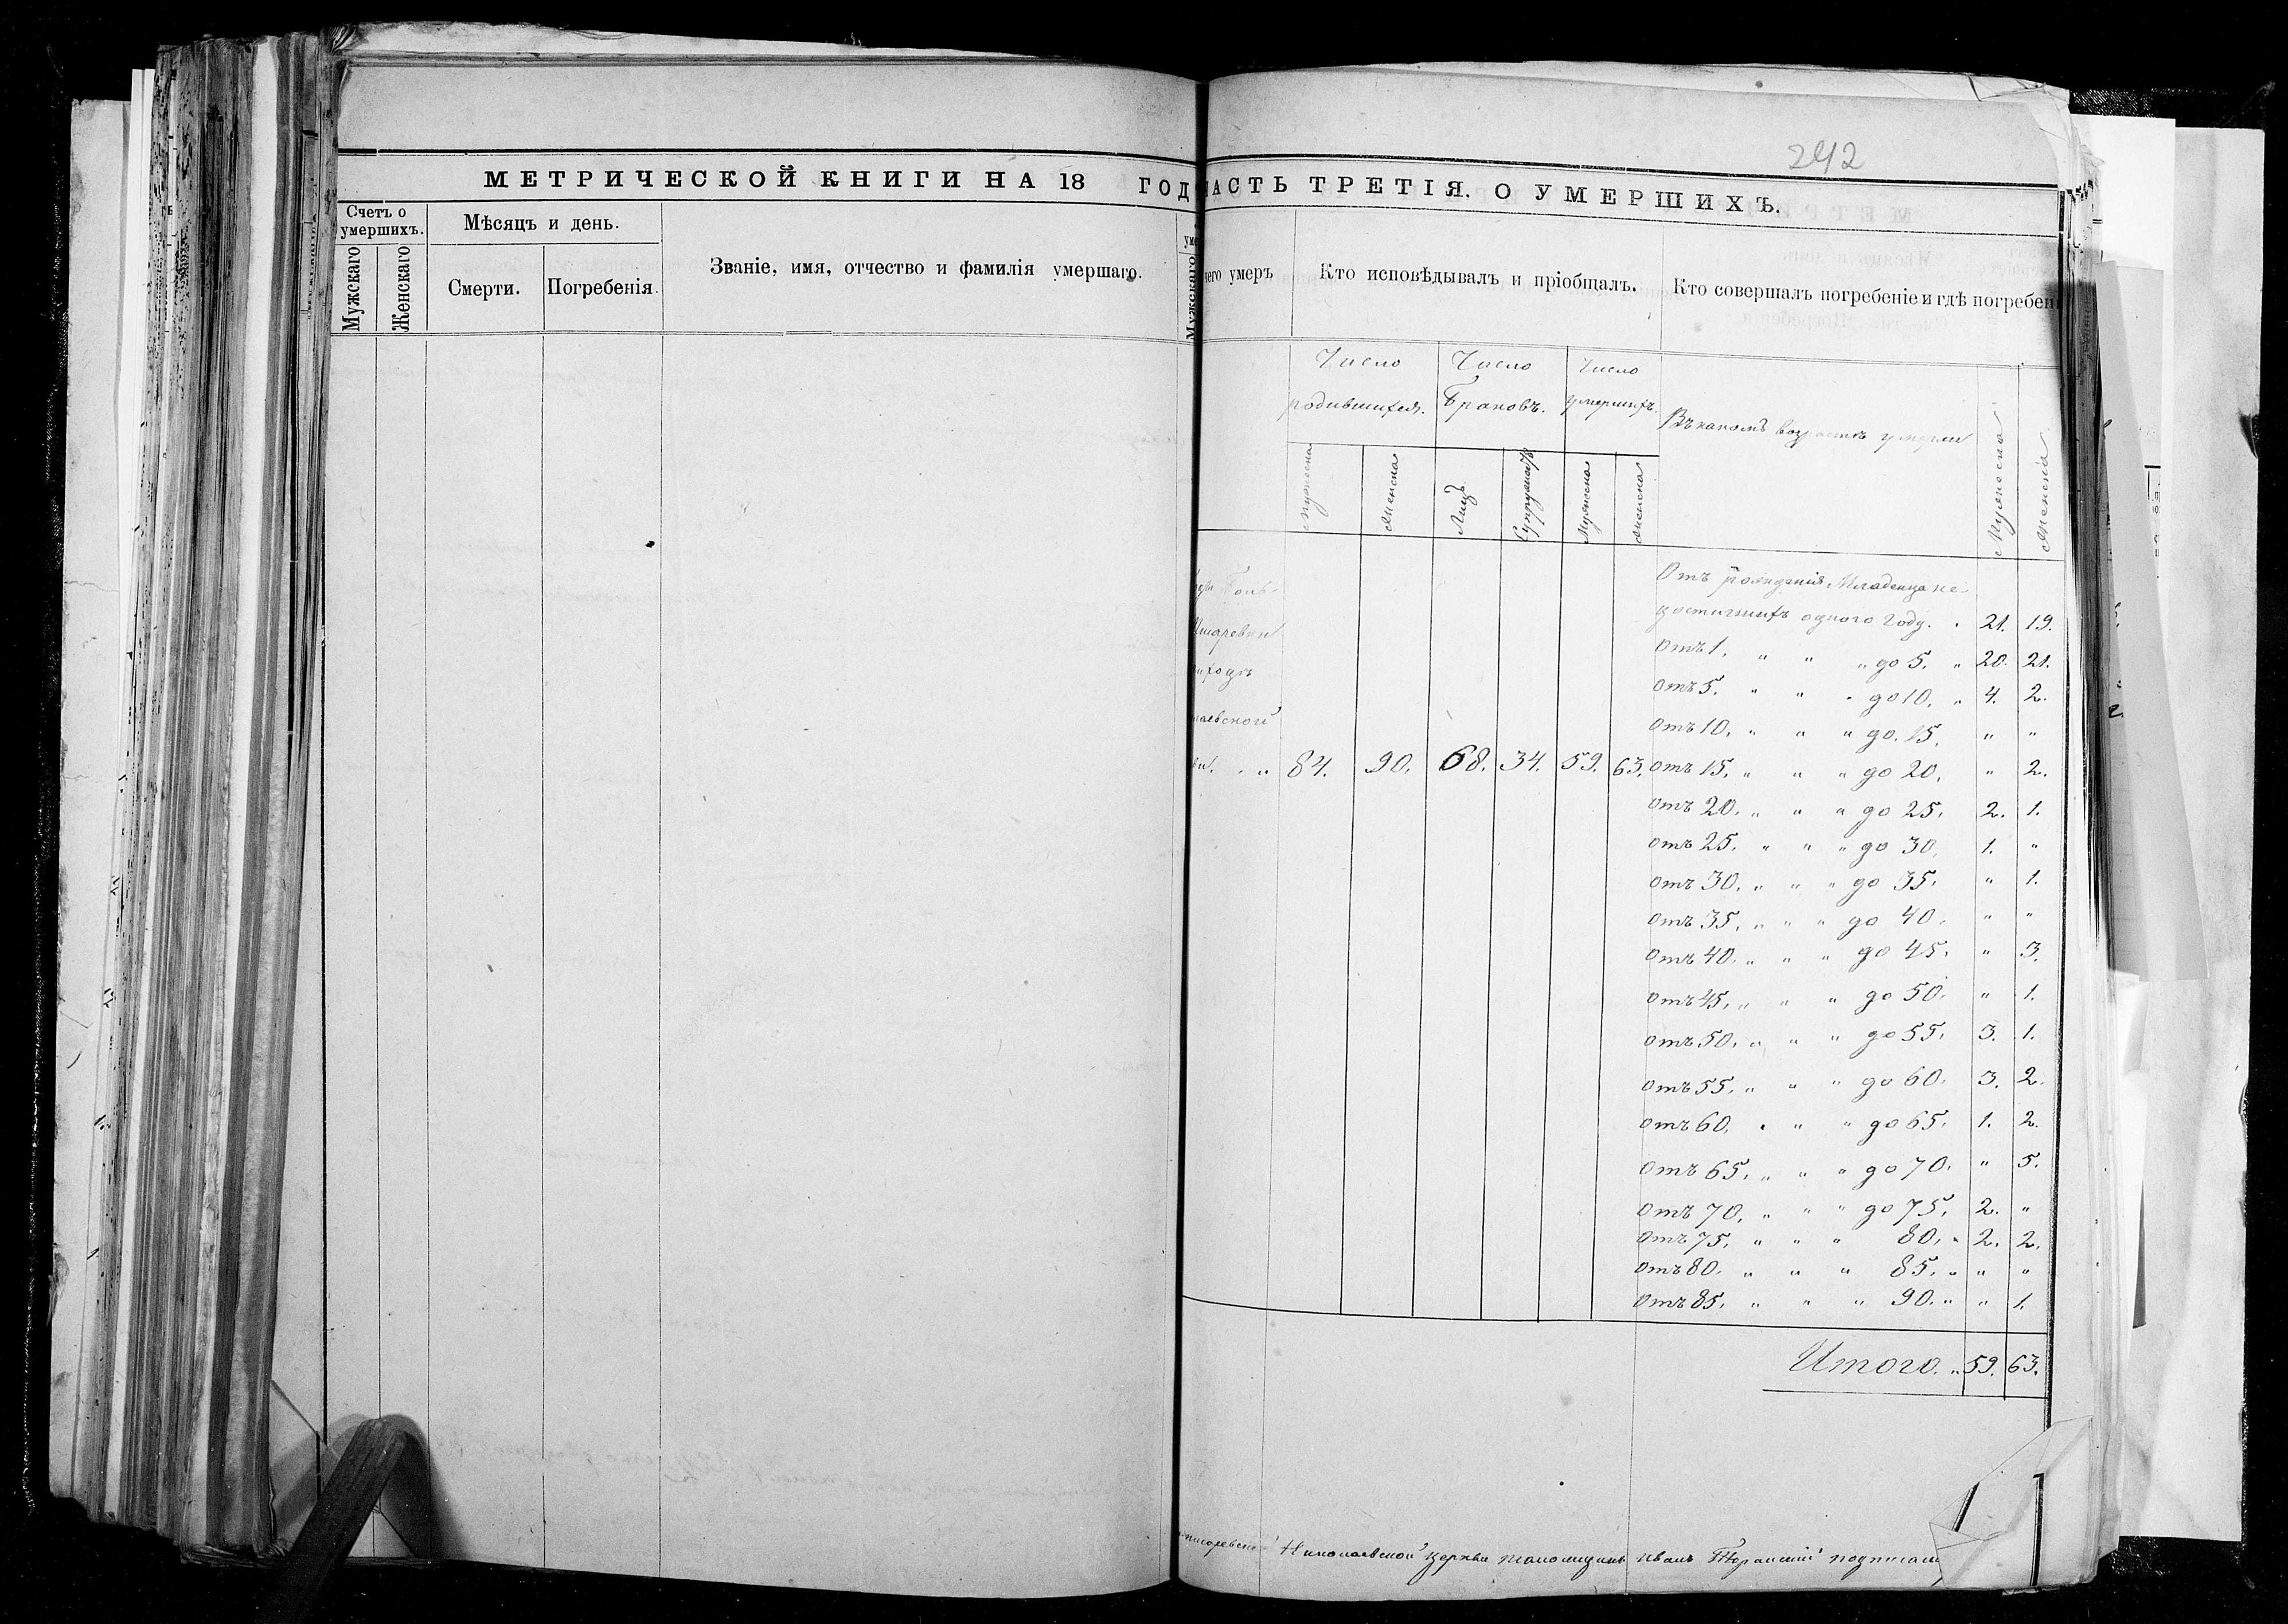 242
МЕТРИЧЕСКОЙ КНИГИ НА 18 ГОД
Счетъ о умершихъ.
Мужскаго
Женскаго
Мѣсяцъ и день.
Смерти.
Погребенія.
Званіе, имя, отчество и фамилія умершаго.
Мужскаго
ЧАСТЬ ТРЕТІЯ. О УМЕРШИХЪ.
чего умеръ
Кто исповѣдывалъ и пріобщалъ.
Кто совершалъ погребеніе и гдѣ погребен
Число родившихся.
Число Браковъ.
Число умершихъ.
Въ какомъ возрастѣ умерли
Мужеска
Женска
Лицъ
Супружествъ
Мужеска
Женска
Мужеска
Женска
84. 90. 68. 34. 59. 63.
Отъ рожденія Младенца не
достигшихъ одного году. " 21. 19.
Отъ 1. " " " до 5. " 20. 21.
отъ 5. " " " до 10. " 4. 2.
отъ 10. " " " до 15. " "
отъ 15. " " " до 20. " 2.
отъ 20. " " " до 25. 2. 1.
отъ 25. " " " до 30. 1. "
отъ 30. " " " до 35. " 1.
отъ 35. " " " до 40. " "
отъ 40. " " " до 45. " 3.
отъ 45. " " " до 50. " 1.
отъ 50. " " " до 55. 3. 1.
отъ 55. " " " до 60. 3. 2.
отъ 60. " " " до 65. 1. 2.
отъ 65. " " " до 70. " 5.
отъ 70. " " " до 75. 2. "
отъ 75. " " " 80. " 2. 2.
отъ 80. " " " 85. " " "
отъ 85. " " " 90. " " 1.
Итого. " 59. 63.
Николаевской церкви псаломщикъ Иванъ